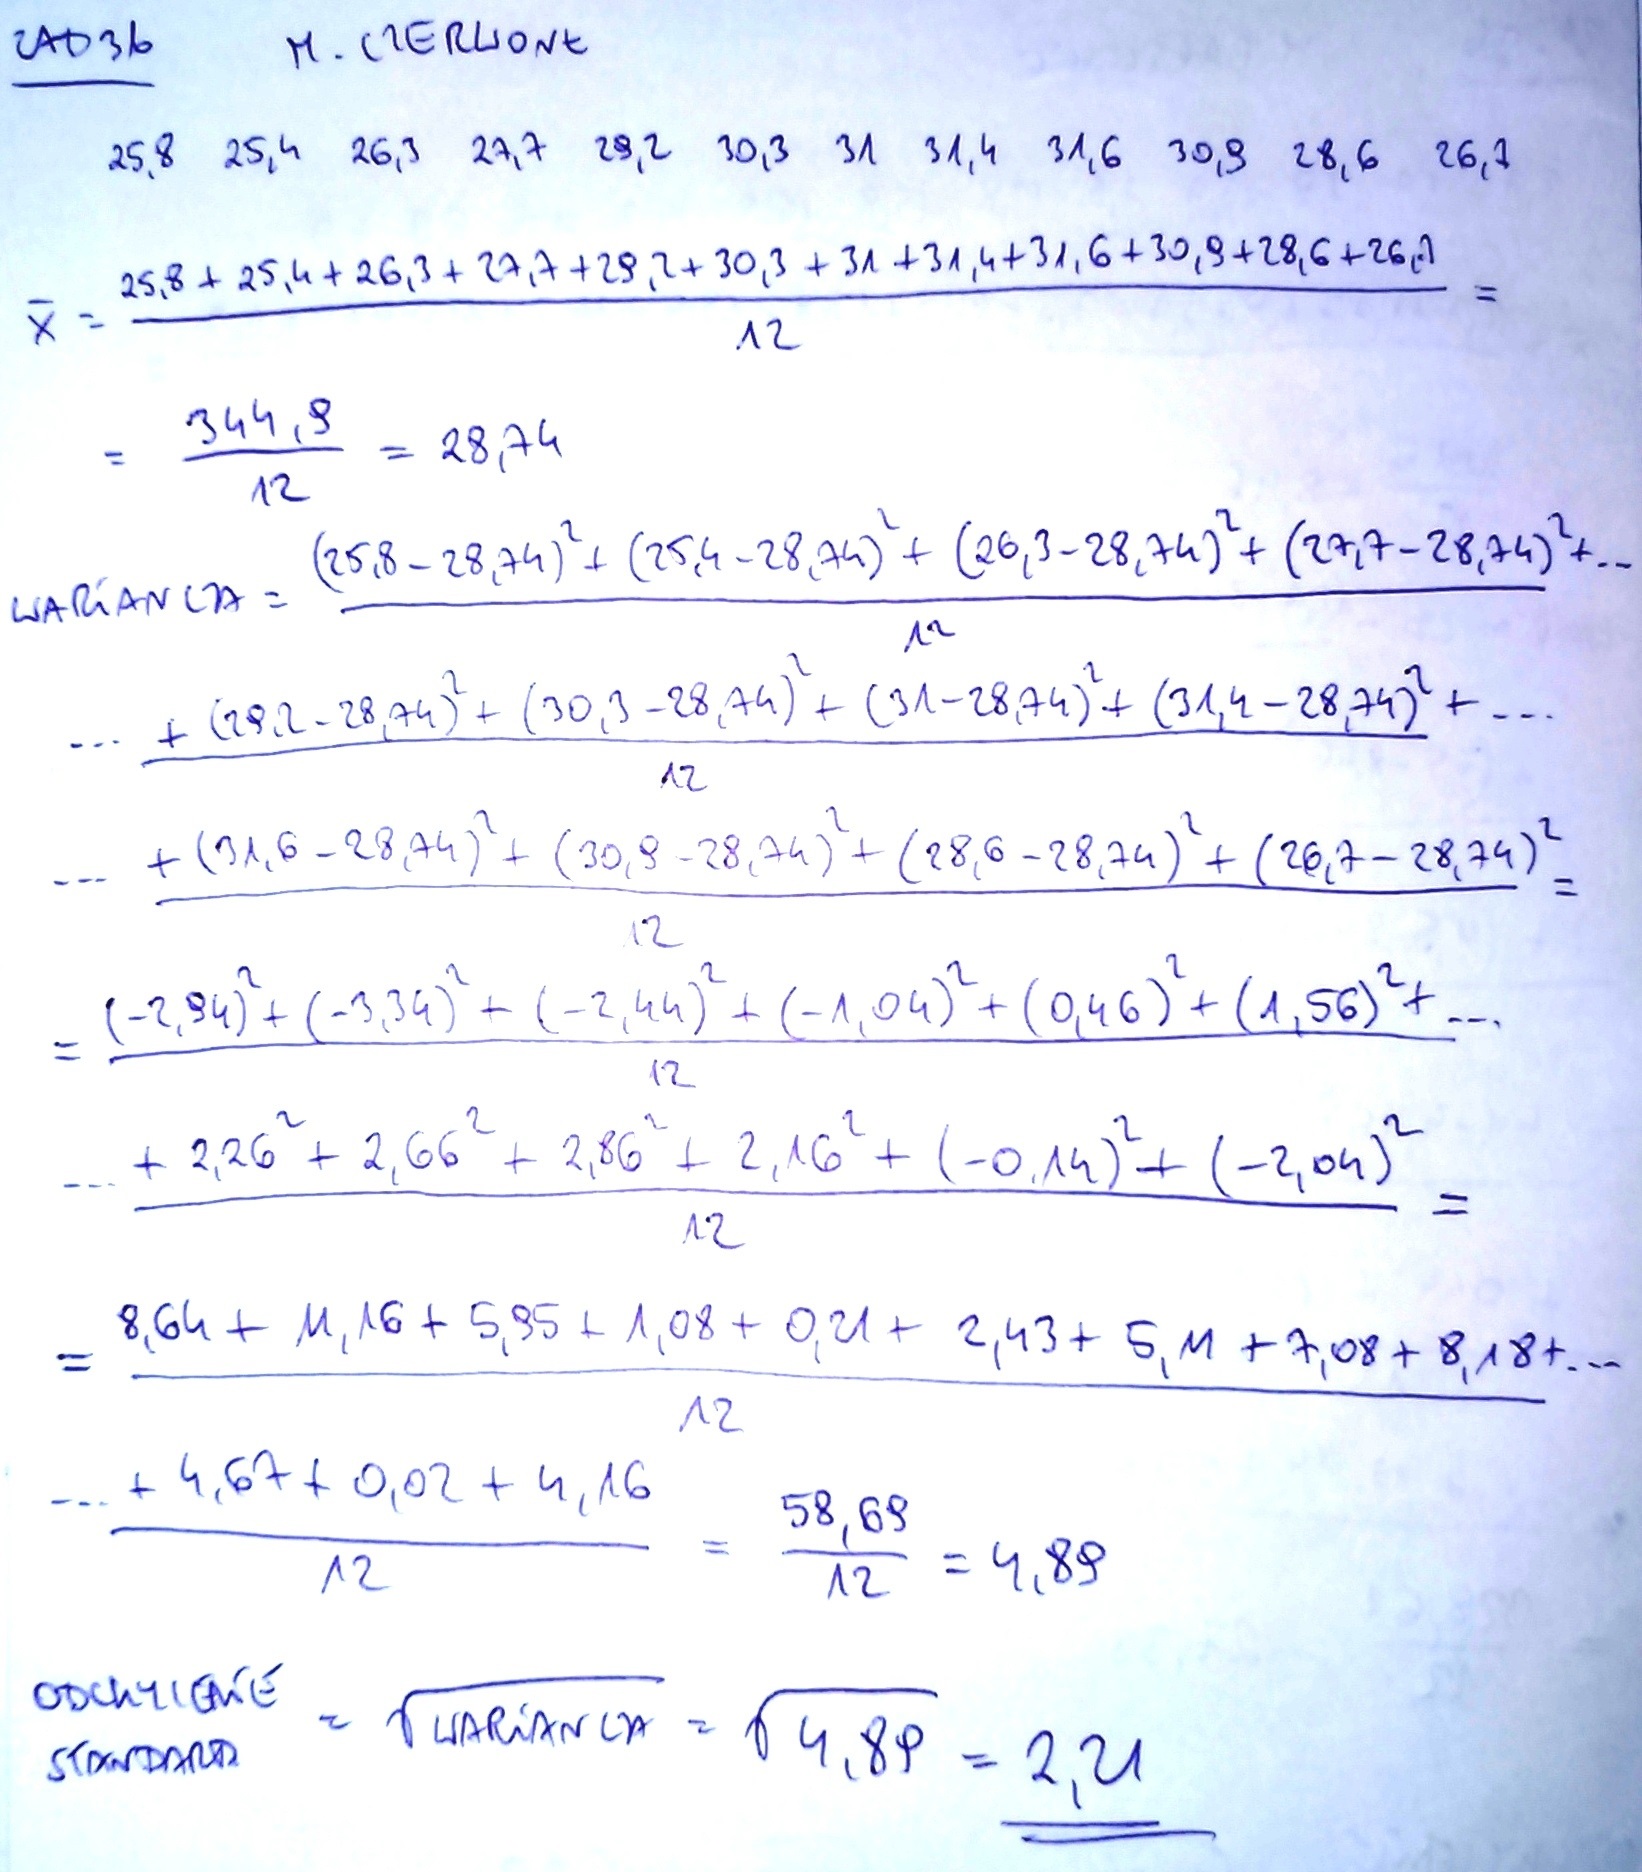 ZAD 3b M. CZERWONE
25,8 25,4 26,3 27,7 29,2 30,3 31 31,4 31,6 30,9 28,6 26,7
x̄ = (25,8 + 25,4 + 26,3 + 27,7 + 29,2 + 30,3 + 31 + 31,4 + 31,6 + 30,9 + 28,6 + 26,7) / 12 =
= 344,9 / 12 = 28,74
WARIANCJA = ((25,8 - 28,74)² + (25,4 - 28,74)² + (26,3 - 28,74)² + (27,7 - 28,74)² + ... / 12
... + (29,2 - 28,74)² + (30,3 - 28,74)² + (31 - 28,74)² + (31,4 - 28,74)² + ... / 12
... + (31,6 - 28,74)² + (30,9 - 28,74)² + (28,6 - 28,74)² + (26,7 - 28,74)² / 12 =
= (-2,94)² + (-3,34)² + (-2,44)² + (-1,04)² + (0,46)² + (1,56)² + ... / 12
... + 2,26² + 2,66² + 2,86² + 2,16² + (-0,14)² + (-2,04)² / 12 =
= 8,64 + 11,16 + 5,95 + 1,08 + 0,21 + 2,43 + 5,11 + 7,08 + 8,18 + ... / 12
... + 4,67 + 0,02 + 4,16 / 12 = 58,69 / 12 = 4,89
ODCHYLENIE STANDARD = √WARIANCJA = √4,89 = 2,21